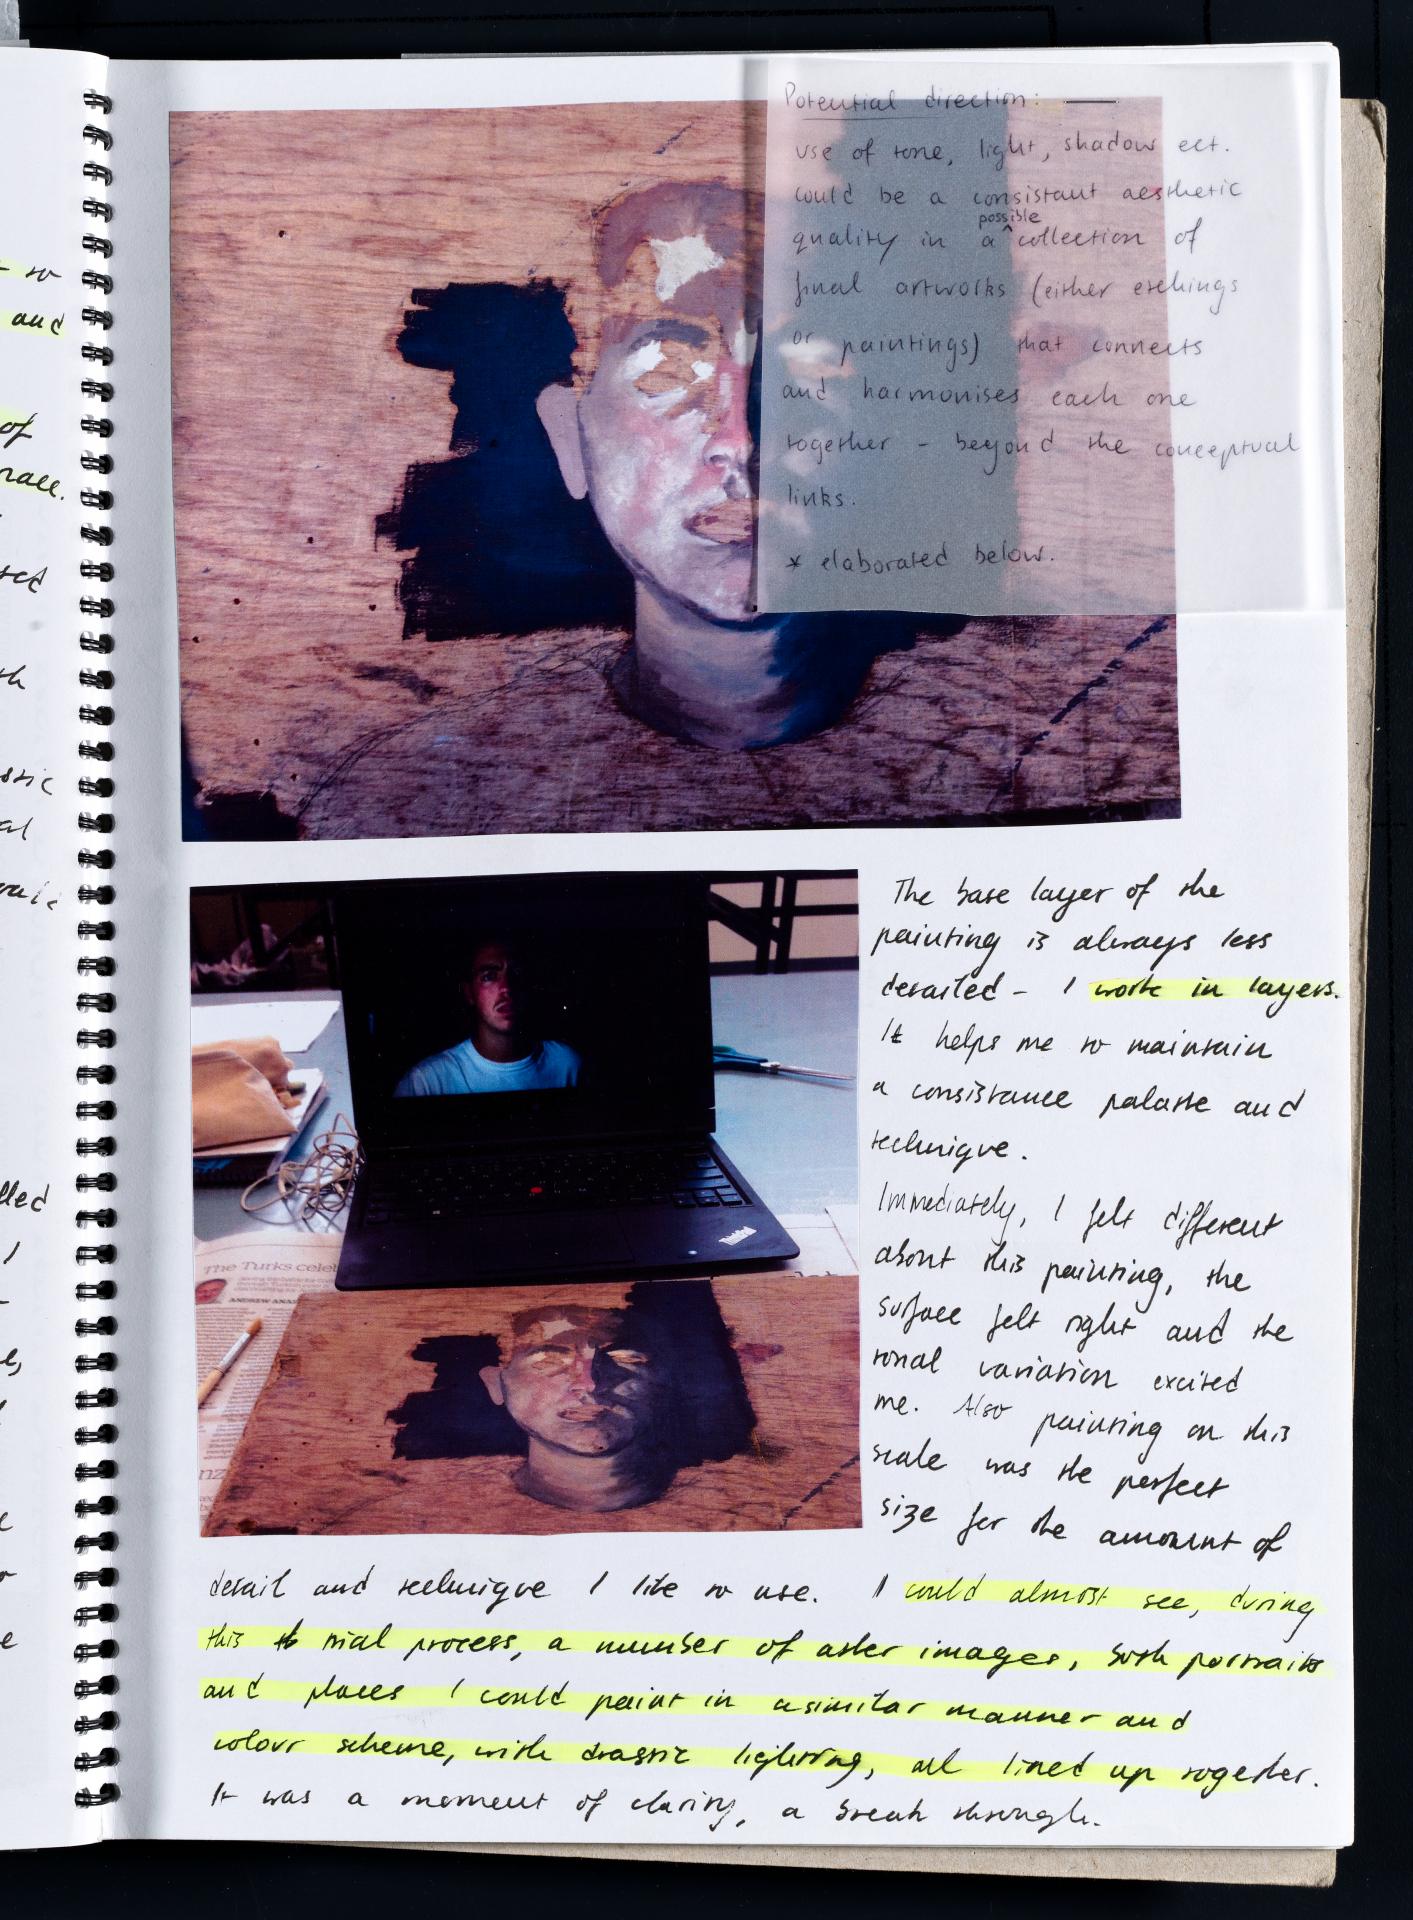 Potential direction:
use of tone, light, shadow ect.
could be a consistant aesthetic
possible
quality in a ^ collection of
final artworks (either etchings
or paintings) that connects
and harmonises each one
together - beyond the conceptual
links.
* elaborated below.
ThinkPad
The Turks celeb
The base layer of the
painting is always less
detailed - I work in layers.
It helps me to maintain
a consistance palatte and
technique.
Immediately, I felt different
about this painting, the
surface felt right and the
tonal variation excited
me. Also painting on this
scale was the perfect
size for the amount of
detail and technique I like to use. I could almost see, during
this trial process, a number of other images, both portraits
and places I could paint in a similar manner and
colour scheme, with drastic lighting, all lined up together.
It was a moment of clarity, a break through.
to
and
of